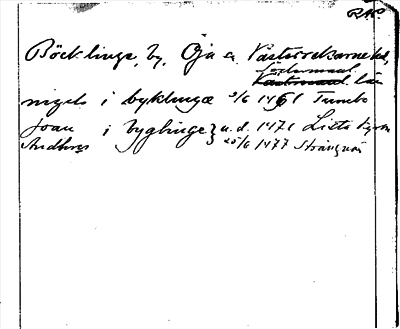 RAP.
Böcklinge, by, Öja s. Västerrekarne hd,
Södermanl.
Västmanl. län
nigels i byklinge 3/6 1461 Tumbo
Joan i byglinge } u. d. 1471 Lista
Andhers 25/6 1477 Strängnäs